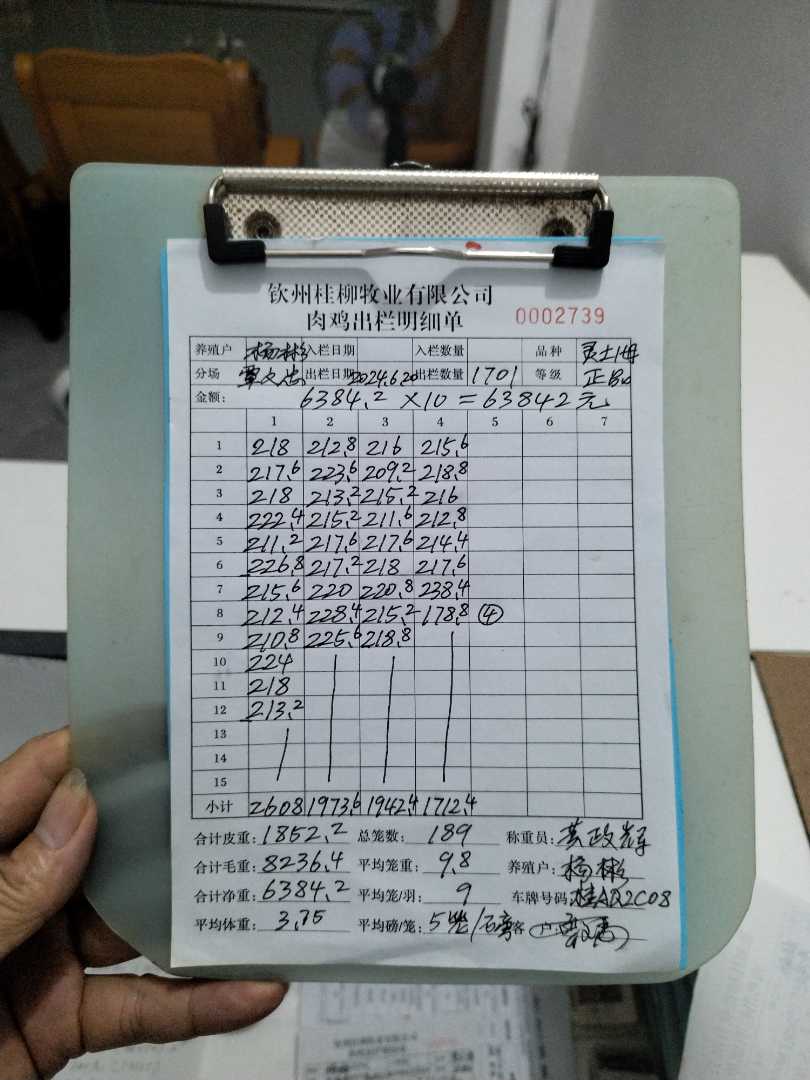 钦州桂柳牧业有限公司
肉鸡出栏明细单 0002739
养殖户 杨彬 入栏日期 入栏数量 品种
分场 出栏日期 2024.6.20 出栏数量 1701 等级
金额: 6384.2 ×10 = 63842元
1 2 3 4 5 6 7
1 218 212.8 216 215.6
2 217.6 223.6 209.2 218.8
3 218 213.2 215.2 216
4 222.4 215.2 211.6 212.8
5 211.2 217.6 217.6 214.4
6 226.8 217.2 218 217.6
7 215.6 220 220.8 238.4
8 212.4 228.4 215.2 178.8 ④
9 210.8 225.6 218.8
10 224
11 218
12 213.2
13
14
15
小计 2608 1973.6 1942.4 1712.4
合计皮重: 1852.2 总笼数: 189 称重员: 黄政辉
合计毛重: 8236.4 平均笼重: 9.8 养殖户: 杨彬
合计净重: 6384.2 平均笼/羽: 9 车牌号码: 桂AQ2C08
平均体重: 3.75 平均磅/笼: 5 客户: